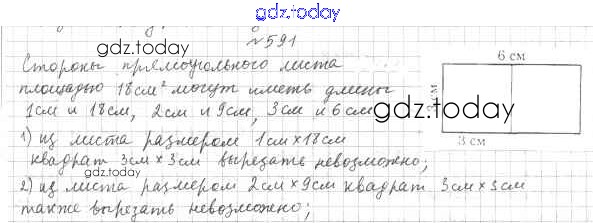 gdz.today
№591
gdz.today
Стороны прямоугольного листа
площадью 18см² могут иметь длины
1см и 18см, 2см и 9см, 3см и 6см
gdz.today
1) из листа размером 1см×18см
квадрат 3см×3см вырезать невозможно;
2) из листа размером 2см×9см квадрат 3см×3см
также вырезать невозможно;
6 см
3 см
3 см